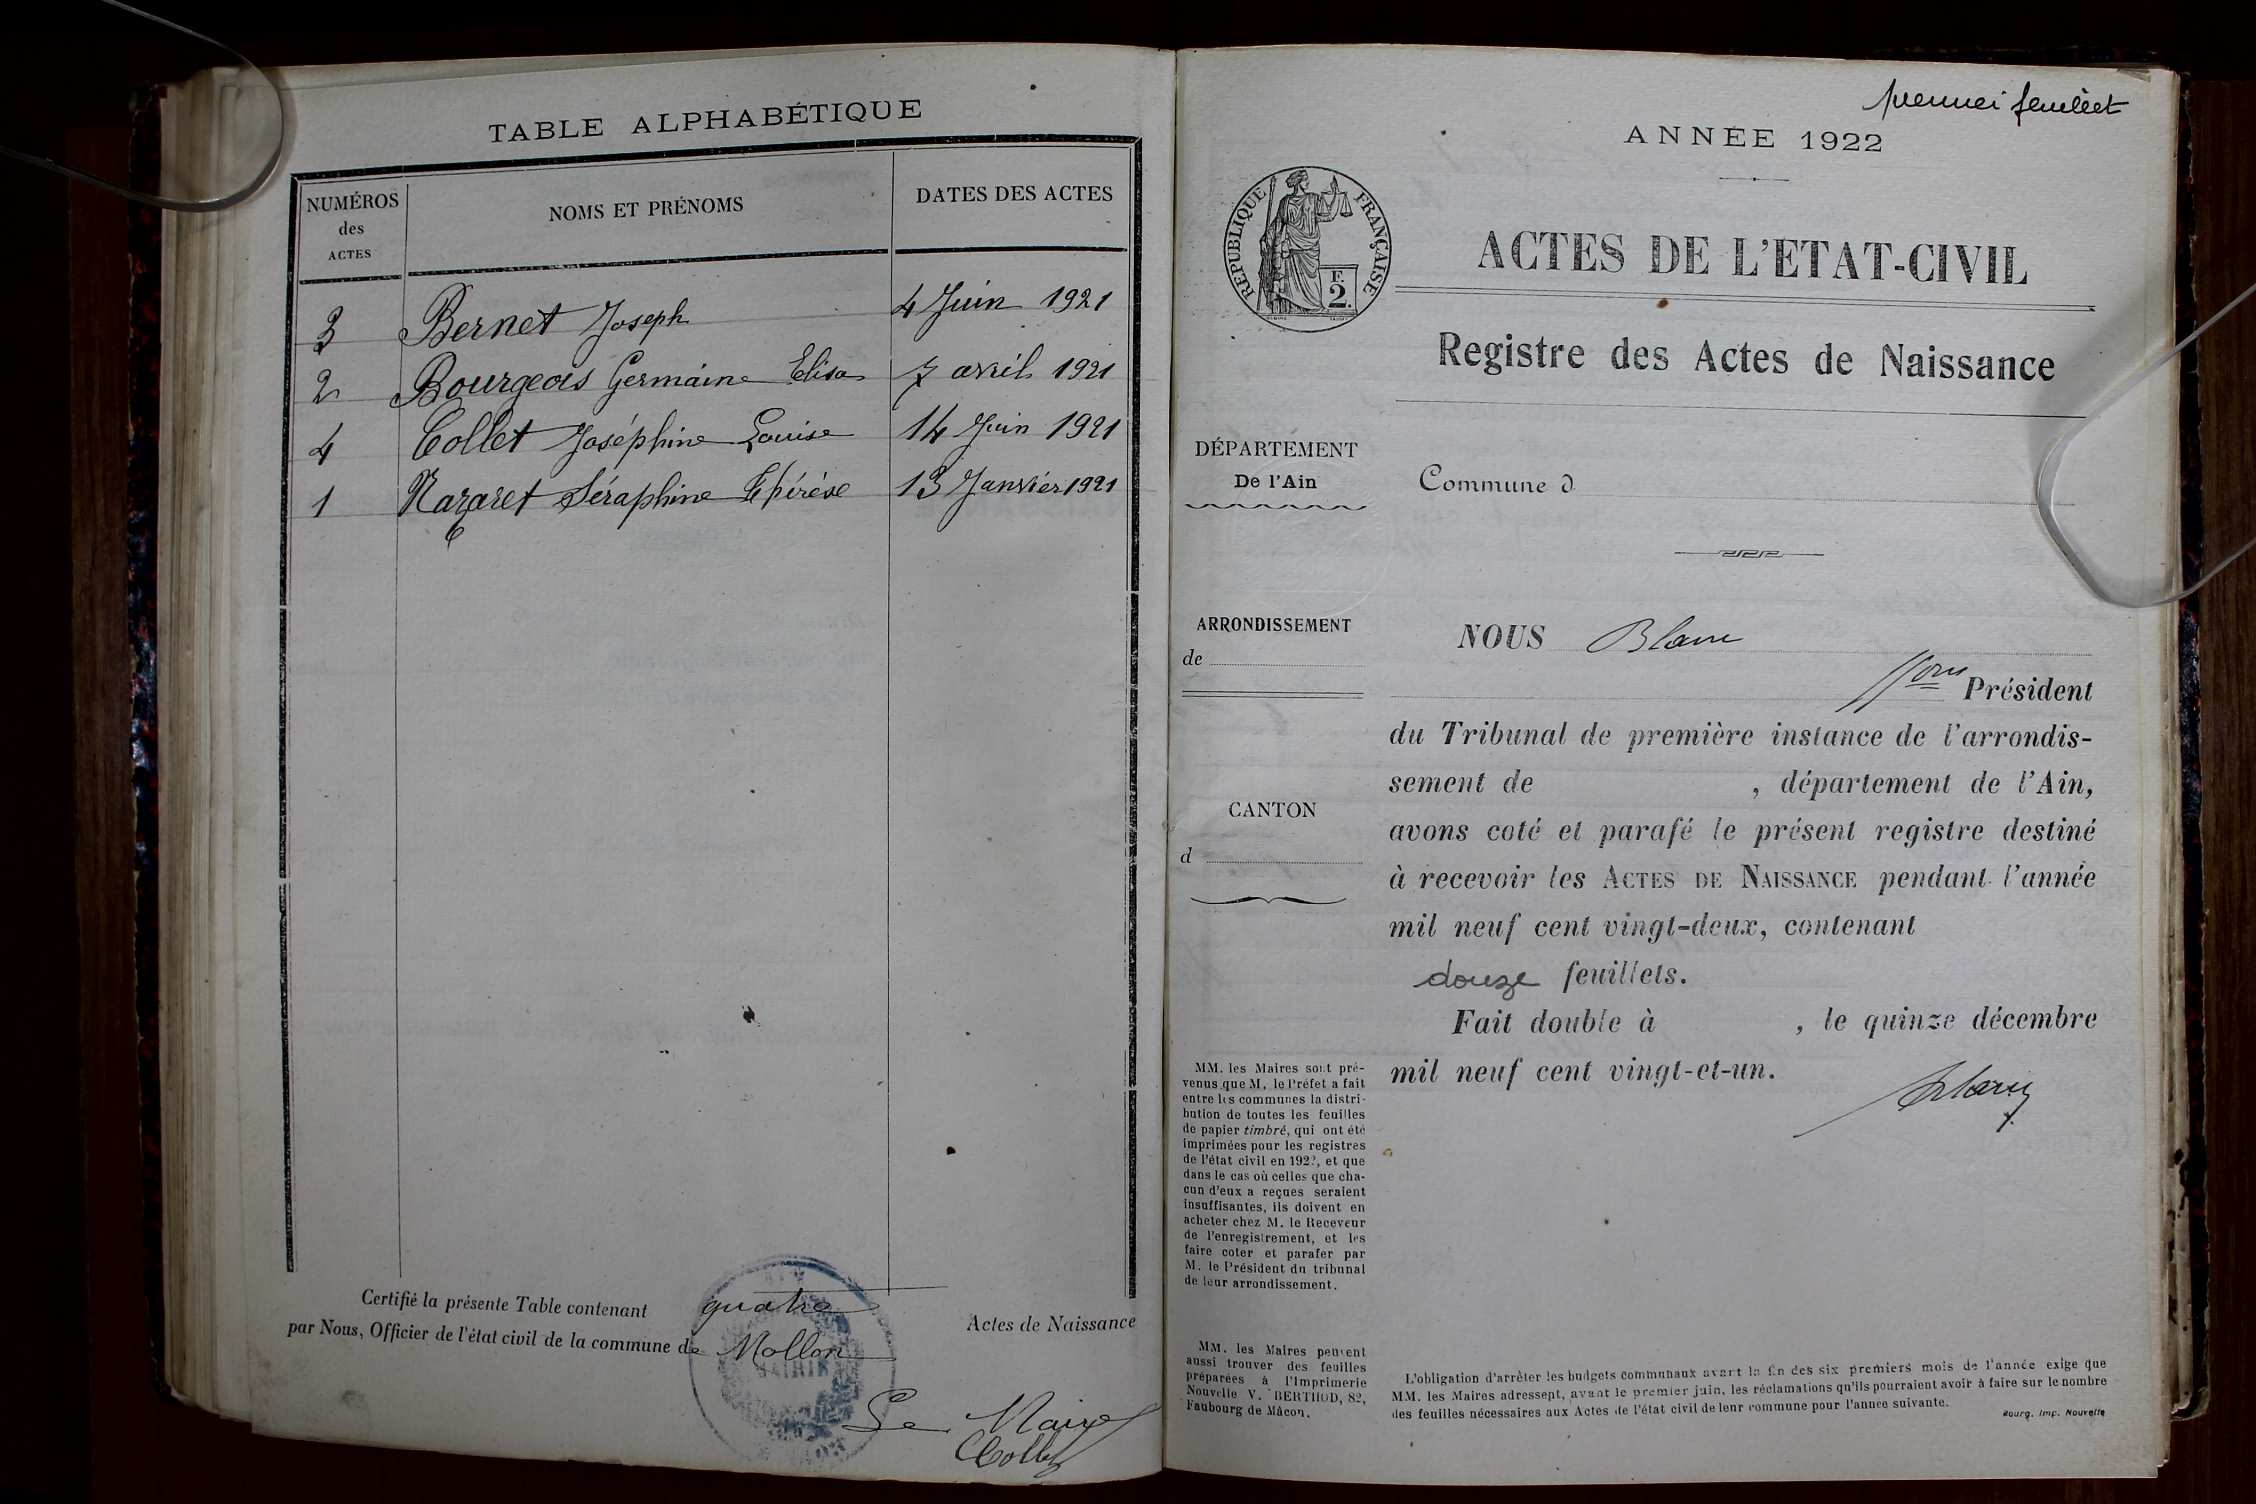 TABLE ALPHABÉTIQUE
NUMÉROS des ACTES
NOMS ET PRÉNOMS
DATES DES ACTES
3 Bernet Joseph 4 Juin 1921
2 Bourgeois Germaine Elisa 7 avril 1921
4 Collet Joséphine Louise 14 Juin 1921
1 Nazaret Séraphine Thérèse 13 Janvier 1921
Certifié la présente Table contenant quatre Actes de Naissance
par Nous, Officier de l'état civil de la commune de Mollon
MAIRIE
Le Maire
Collet
premier feuillet
ANNÉE 1922
REPUBLIQUE FRANÇAISE
F. 2.
ACTES DE L'ETAT-CIVIL
Registre des Actes de Naissance
DÉPARTEMENT
De l'Ain
Commune d
ARRONDISSEMENT
de
CANTON
d
NOUS
Président
du Tribunal de première instance de l'arrondis-
sement de , département de l'Ain,
avons coté et parafé le présent registre destiné
à recevoir les ACTES DE NAISSANCE pendant l'année
mil neuf cent vingt-deux, contenant
douze feuillets.
Fait double à , le quinze décembre
mil neuf cent vingt-et-un.
MM. les Maires sont pré-
venus que M. le Préfet a fait
entre les communes la distri-
bution de toutes les feuilles
de papier timbré, qui ont été
imprimées pour les registres
de l'état civil en 1922, et que
dans le cas où celles que cha-
cun d'eux a reçues seraient
insuffisantes, ils doivent en
acheter chez M. le Receveur
de l'enregistrement, et les
faire coter et parafer par
M. le Président du tribunal
de leur arrondissement.
MM. les Maires peuvent
aussi trouver des feuilles
préparées à l'Imprimerie
Nouvelle V. BERTHOD, 82,
Faubourg de Mâcon.
L'obligation d'arrêter les budgets communaux avant la fin des six premiers mois de l'année exige que
MM. les Maires adressent, avant le premier juin, les réclamations qu'ils pourraient avoir à faire sur le nombre
des feuilles nécessaires aux Actes de l'état civil de leur commune pour l'annee suivante.
Bourg. Imp. Nouvelle